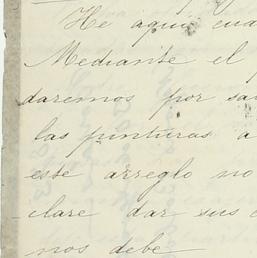 He aqui
Mediante el
daremos por
las pinturas a
este arreglo no
clare dar sus
nos debe